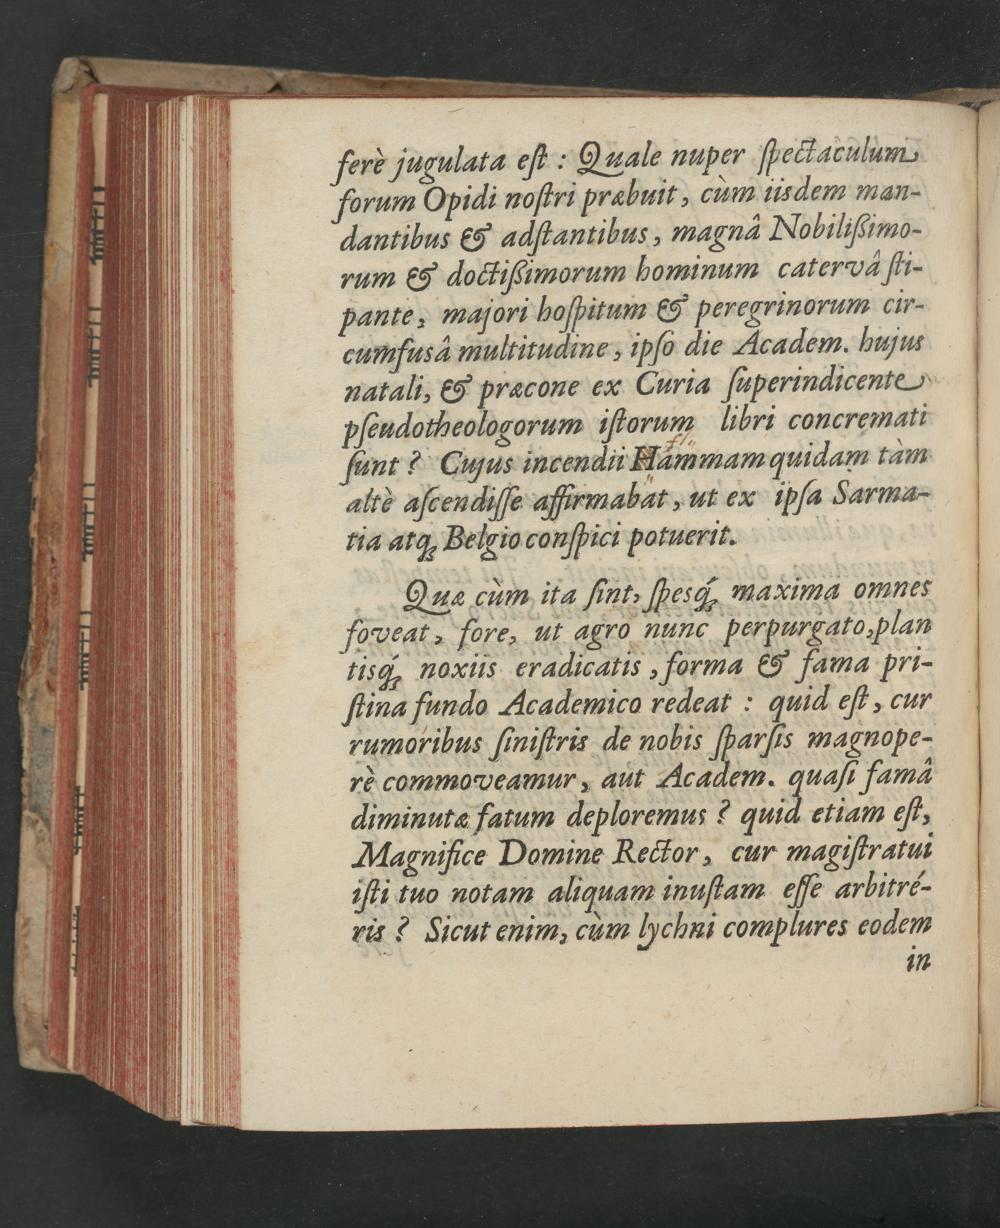 ferè jugulata eſt : Quale nuper ſpectaculum
forum Opidi noſtri præbuit, cùm iisdem man-
dantibus & adſtantibus, magnâ Nobiliſsimo-
rum & doctiſsimorum hominum catervâ ſti-
pante, majori hoſpitum & peregrinorum cir-
cumfusâ multitudine, ipſo die Academ. hujus
natali, & præcone ex Curia ſuperindicente
pſeudotheologorum iſtorum libri concremati
ſunt ? Cujus incendii Hammam quidam tàm
altè aſcendiſſe affirmabat, ut ex ipſa Sarma-
tia atq; Belgio conſpici potuerit.
Quæ cùm ita ſint, ſpesq́; maxima omnes
foveat, fore, ut agro nunc perpurgato, plan
tisq́; noxiis eradicatis, forma & fama pri-
ſtina fundo Academico redeat : quid eſt, cur
rumoribus ſiniſtris de nobis ſparſis magnope-
rè commoveamur, aut Academ. quaſi famâ
diminutæ fatum deploremus ? quid etiam eſt,
Magnifice Domine Rector, cur magiſtratui
iſti tuo notam aliquam inuſtam eſſe arbitré-
ris ? Sicut enim, cùm lychni complures eodem
in